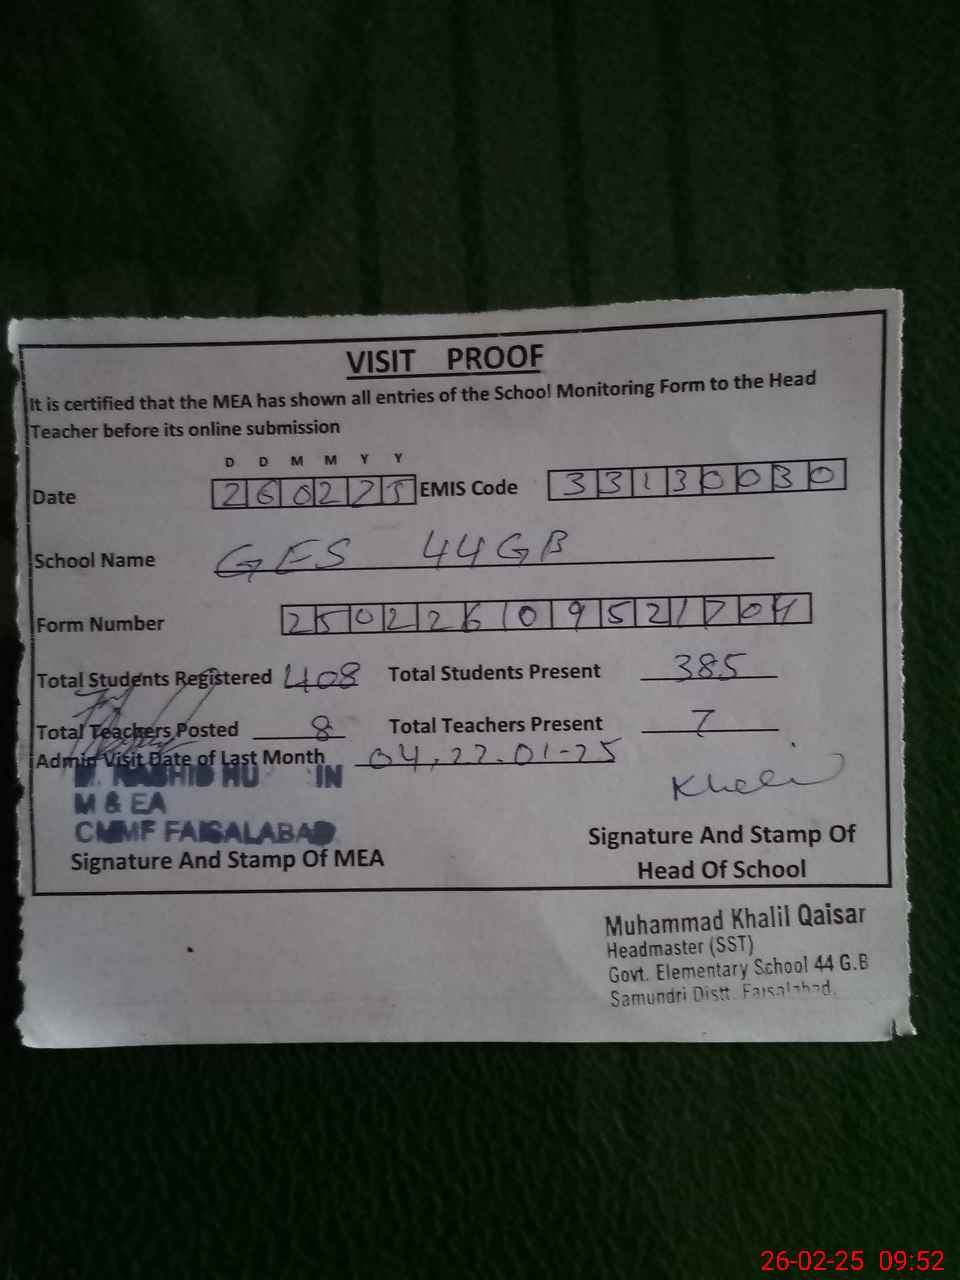 VISIT PROOF
It is certified that the MEA has shown all entries of the School Monitoring Form to the Head
Teacher before its online submission
D D M M Y Y
Date 260225 EMIS Code 33130030
School Name GES 44GB
Form Number
Total Students Registered 408 Total Students Present 385
Total Teachers Posted 8 Total Teachers Present 7
Admin Visit Date of Last Month 04,22.01-25
M & EA
CMMF FAISALABAD
Signature And Stamp Of MEA
Signature And Stamp Of
Head Of School
Muhammad Khalil Qaisar
Headmaster (SST)
Govt. Elementary School 44 G.B
Samundri Distt. Faisalabad.
26-02-25 09:52